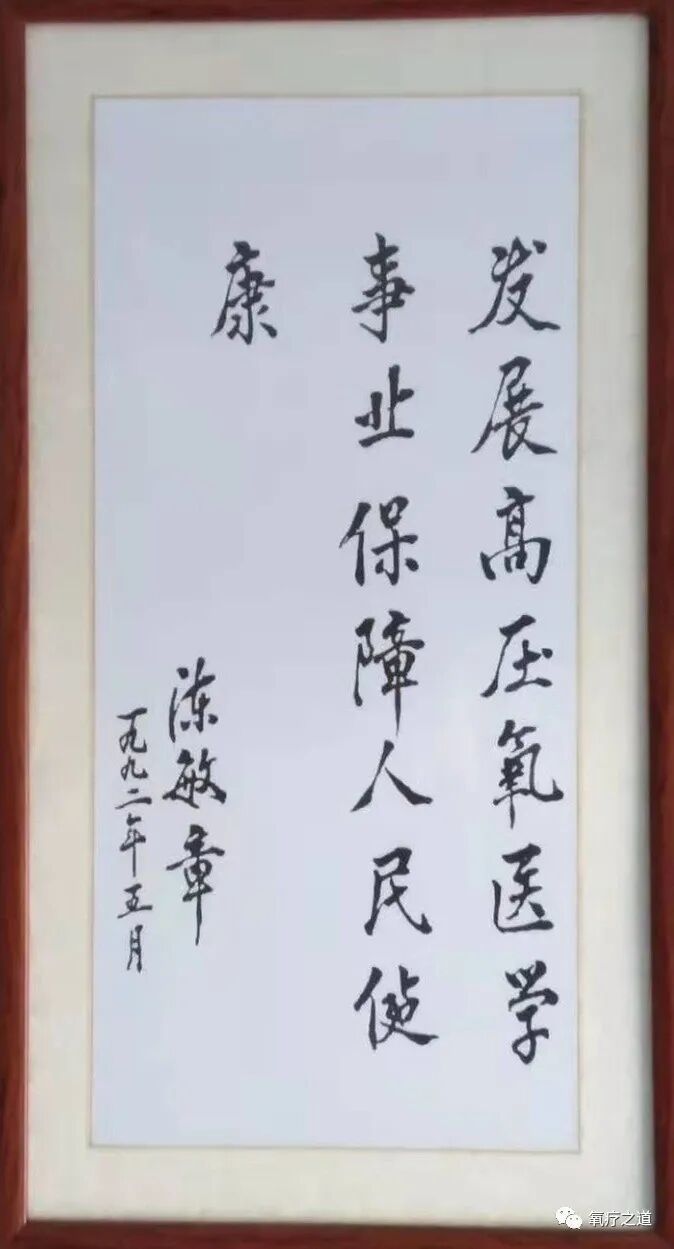 发展高压氧医学
事业保障人民健
康
陈敏章
一九九二年五月
氧疗之道